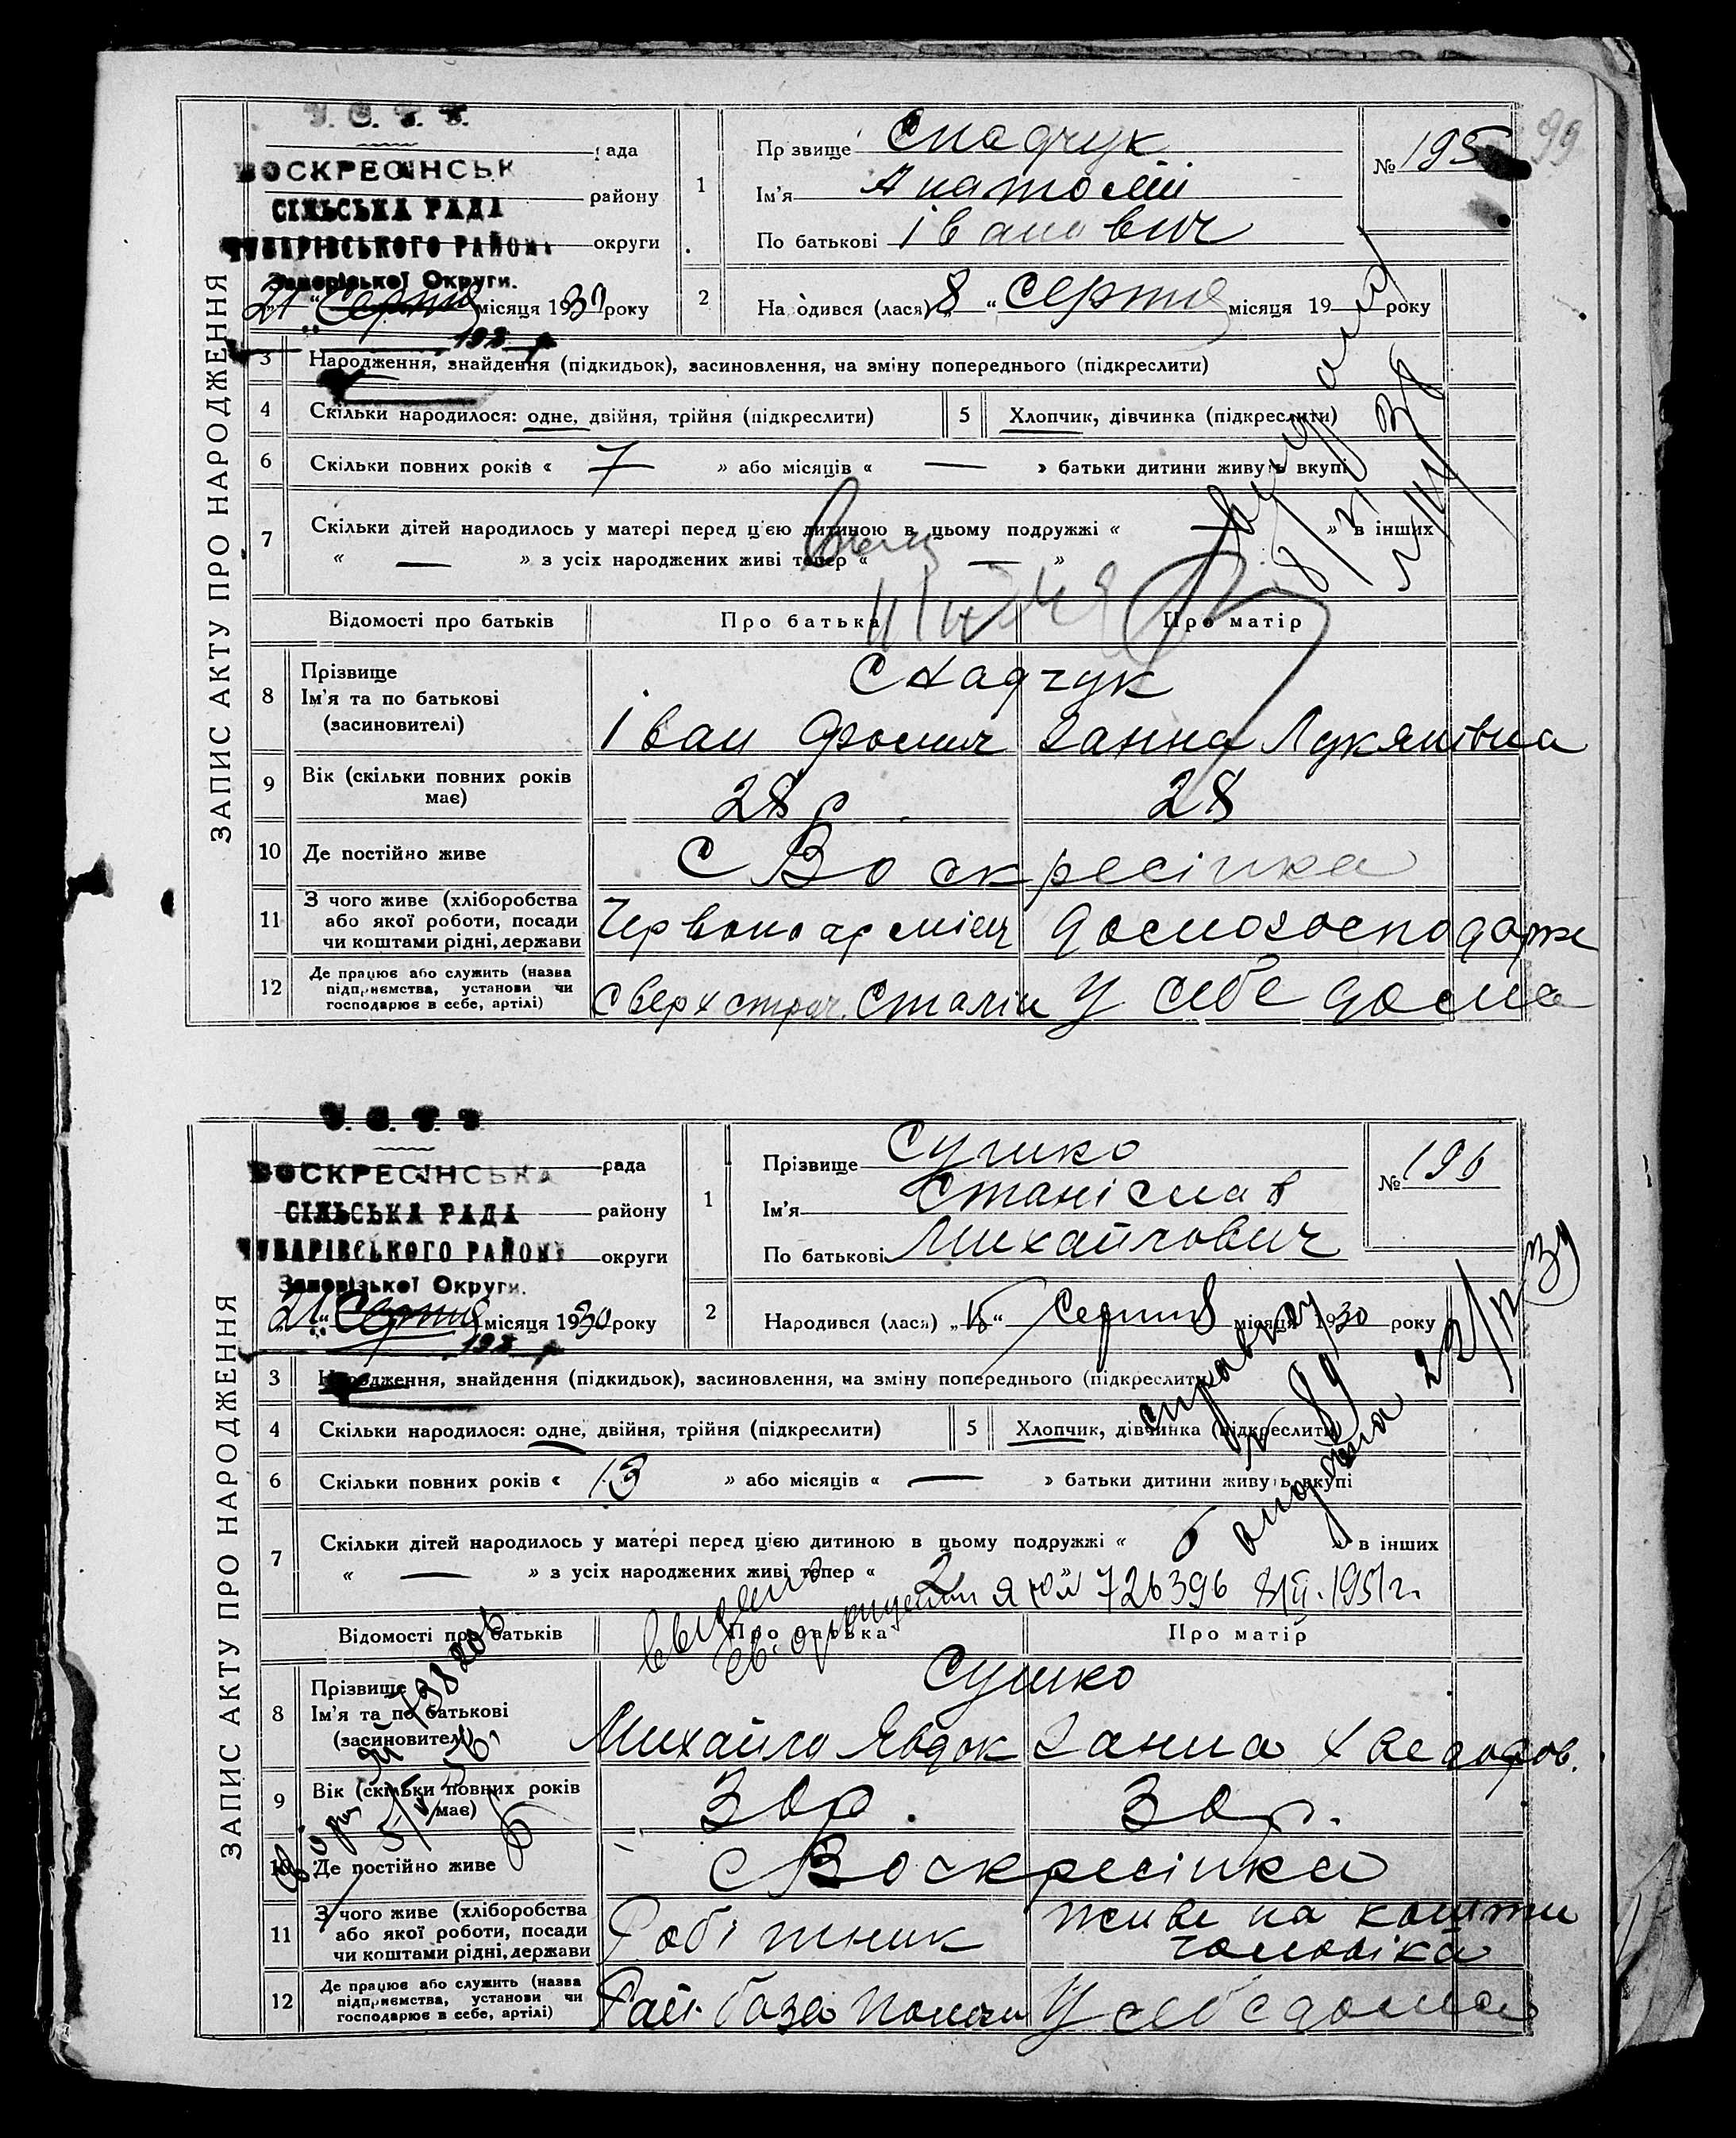 99
ЗАПИС АКТУ ПРО НАРОДЖЕННЯ
У. С. Р. Р.
рада
ВОСКРЕСІНСЬК
району
СІЛЬСЬКА РАДА
ЧУБАРІВСЬКОГО РАЙОНУ
округи
Запорізької Округи.
„21“ Серпня місяця 1930 року
192 р
1
Прізвище
Ім'я Анатолій
По батькові Іванович
№ 195
2
Народився (лася) „8“ Серпня місяця 19 року
3 Народження, знайдення (підкидьок), засиновлення, на зміну попереднього (підкреслити)
4 Скільки народилося: одне, двійня, трійня (підкреслити)
5 Хлопчик, дівчинка (підкреслити)
6 Скільки повних років « 7 » або місяців « — » батьки дитини живуть вкупі
7 Скільки дітей народилось у матері перед цією дитиною в цьому подружжі « — » в інших
« — » з усіх народжених живі тепер « — »
Відомості про батьків Про батька Про матір
8 Прізвище
Ім'я та по батькові
(засиновителі)
Іван Фомич Ганна Лукянівна
9 Вік (скільки повних років має) 28 р 28
10 Де постійно живе с Воскресінка
11 З чого живе (хліборобства або якої роботи, посади чи коштами рідні, держави Червоноармієць домогосподарка
12 Де працює або служить (назва підприємства, установи чи господарює в себе, артілі) Сверхстроч. Сталін У себе дома
ЗАПИС АКТУ ПРО НАРОДЖЕННЯ
У. С. Р. Р.
рада
ВОСКРЕСІНСЬКА
району
СІЛЬСЬКА РАДА
ЧУБАРІВСЬКОГО РАЙОНУ
округи
Запорізької Округи.
„21“ Серпня місяця 1930 року
192 р
1
Прізвище Сушко
Ім'я Станіслав
По батькові Михайлович
№ 196
2
Народився (лася) Серпня місяця 1930 року
3 Народження, знайдення (підкидьок), засиновлення, на зміну попереднього (підкреслити)
4 Скільки народилося: одне, двійня, трійня (підкреслити)
5 Хлопчик, дівчинка (підкреслити)
6 Скільки повних років « 13 » або місяців « — » батьки дитини живуть вкупі
7 Скільки дітей народилось у матері перед цією дитиною в цьому подружжі « 5 » в інших
« — » з усіх народжених живі тепер « 2 »
справку
№ 89
22/IV 39
ЯЮ № 726396 8/II.1951 г.
Відомості про батьків Про батька Про матір
8 Прізвище
Ім'я та по батькові
(засиновителі)
Сушко
Михайло Явдок Ганна Хведоров.
9 Вік (скільки повних років має) 30р. 30р.
10 Де постійно живе с Воскресінка
11 З чого живе (хліборобства або якої роботи, посади чи коштами рідні, держави Робітник живе на кошти
чоловіка
12 Де працює або служить (назва підприємства, установи чи господарює в себе, артілі) база У себе дома